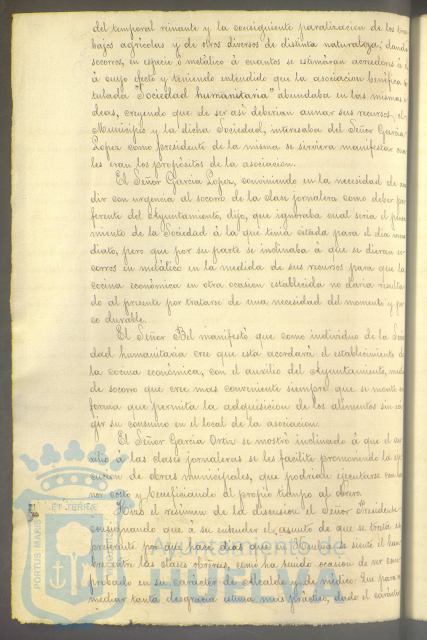 del temporal reinante y la consiguiente paralizacion de los tra
bajos agricolas y de otros diversos de distinta naturaleza, dando
socorros, en especie ó metálico á cuantos se estimáran acreedores á
á cuyo efecto y teniendo entendido que la asociacion benéfica
tulada "Sociedad humanitaria" abundaba en las mismas
deas, creyendo que de ser asi deberian aunar sus recursos, el
Municipio y la dicha Sociedad, interesaba del Señor Garcia
Lopez como presidente de la misma se sirviera manifestar cua
les eran los propósitos de la asociacion.
El Señor Garcia Lopez, conviniendo en la necesidad de
dir con urgencia al socorro de la clase jornalera como deber
ferente del Ayuntamiento, dijo, que ignoraba cual seria el
miento de la Sociedad á la que tenia citada para el dia
diato, pero que por su parte se inclinaba á que se dieran
corros en metálico en la medida de sus recursos para que la
cocina económica en otra ocasion establecida no daria resulta
do al presente por tratarse de una necesidad del momento y
co durable.
El Señor Bel manifestó que como individuo de la So
dad humanitaria cree que esta acordará el establecimiento
la cocina económica, con el auxilio del Ayuntamiento,
de socorro que cree mas conveniente siempre que se monte
forma que permita la adquisicion de los alimentos sin
gir su consumo en el local de la asociacion.
El Señor Garcia Ortiz se mostró inclinado á que el
xilio á las clases jornaleras se les facilite promoviendo la
cucion de obras municipales, que podrian ejecutarse con
nor coste y beneficiando al propio tiempo al obrero.
Hizo el resúmen de la discusion el Señor Presidente
consignando que á su entender el asunto de que se trata
preferente por que hace dias que en Huelva se siente el ham
bre entre las clases obreras, como ha tenido ocasion de
probado en su carácter de Alcalde y de médico. Que para
mediar tanta desgracia estima mas práctico, dado el carácter
PORTUS MARIS
ET TERRE
Ayuntamiento de
HUELVA